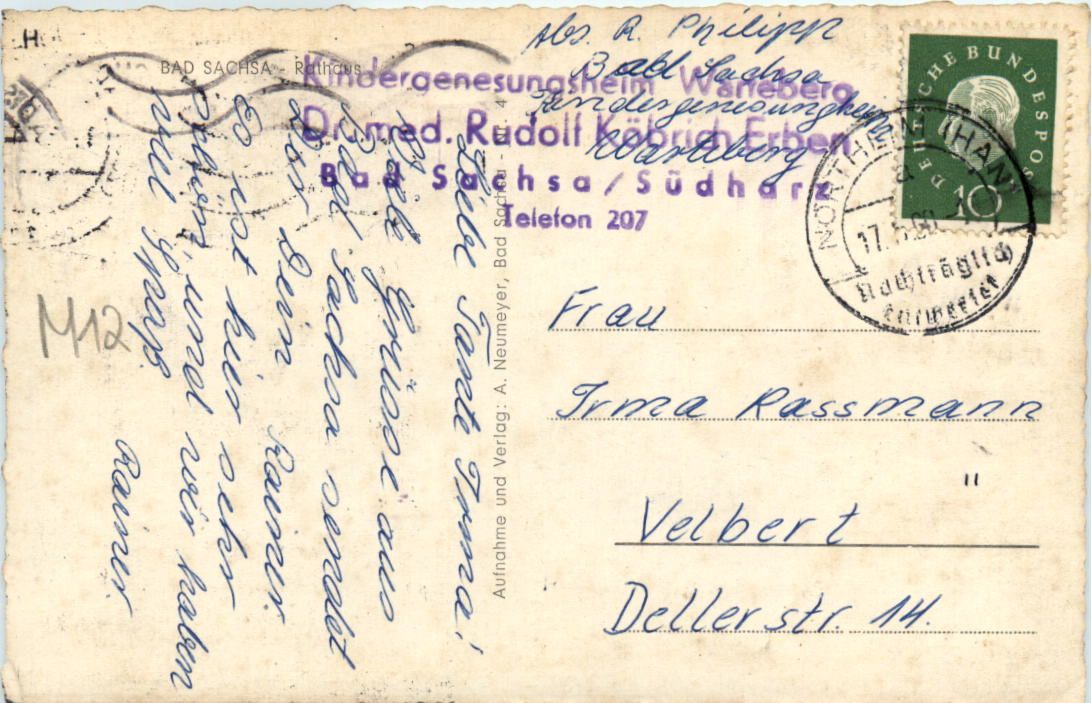 BAD SACHSA - Rathaus
Abs. R. Philipp
Bad Sachsa
Kindergenesungsheim
Warteberg
Kindergenesungsheim Warteberg
Dr. med. Rudolf Köbrich Erben
Bad Sachsa / Südharz
Telefon 207
DEUTSCHE BUNDESPOST
10
NORTHEIM (HAN)
d
17.5.60
Nachträglich
entwertet
Liebe Tante Irma!
Viele Grüsse aus
Bad Sachsa sendet
Dir Dein Rainer.
Es ist hier sehr
schön, und wir haben
viel Spaß.
Rainer
M12
Aufnahme und Verlag: A. Neumeyer, Bad Sachsa - Nr. 4
Frau
Irma Rassmann
Velbert
Dellerstr. 14.